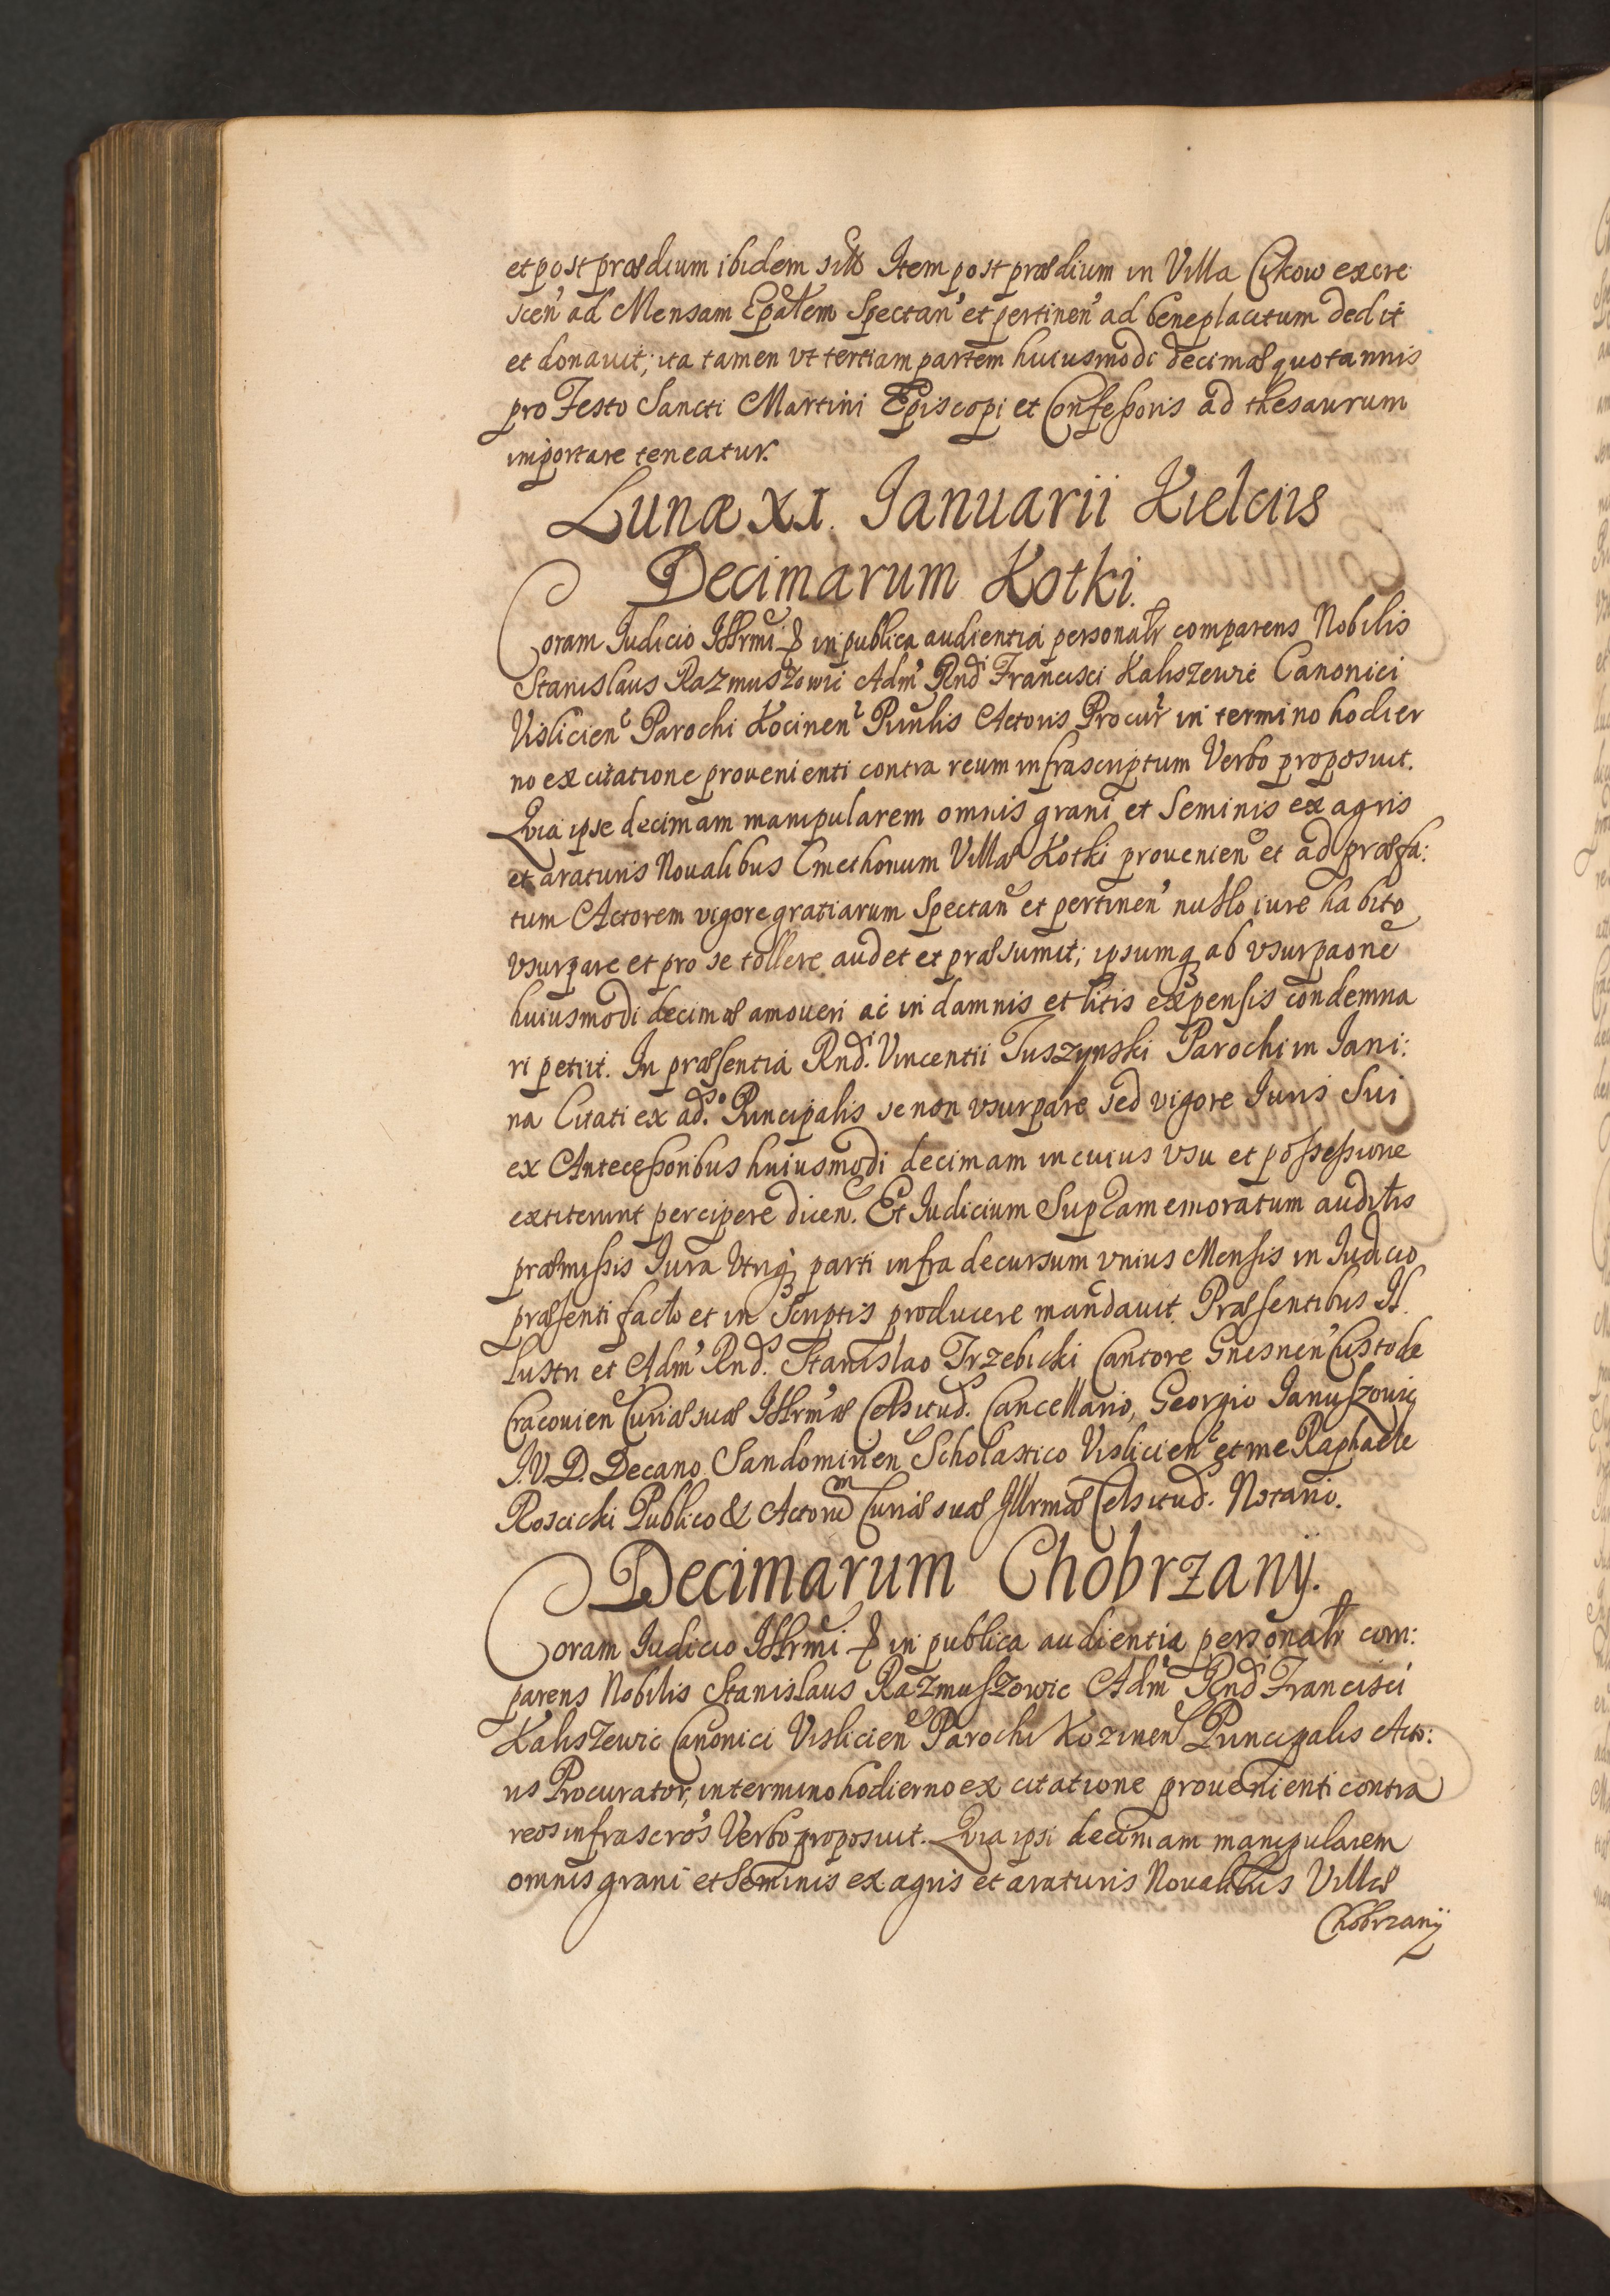 et post prædium ibidem sitto Item post prædium in Villa Cikow excre
scen̄ ad Mensam Epālem Spectan̄ et pertinen̄ ad beneplacitum dedit
et donauit; ita tamen vt tertiam partem huiusmodi decimæ quotannis
pro Festo Sancti Martini Episcopi et Confeßoris ad thesaurum
importare teneatur.
Lunæ XI. Ianuarii Kielciis
Decimarum Kotki.
Coram Iudicio Illrmi & in publica audientia personalr comparens Nobilis
Stanislaus Razmuszowic Adm̄ Rnd̄i Francisci Kaliszewic Canonici
Vislicien̄ Parochi Kocinen̄ Prinlis Actoris Procur̄ in termino hodier
no ex citatione prouenienti contra reum infrascriptum Verbo proposuit.
Quia ipse decimam manipularem omnis grani et Seminis ex agris
et araturis Noualibus Cmethonum Villæ Kotki prouenien̄ et ad præfa:
tum Actorem vigore gratiarum Spectan̄ et pertinen̄ nullo iure habito
vsurpare et pro se tollere audet et præsumit; ipsumq ab vsurpaōne
huiusmodi decimæ amoueri ac in damnis et litis expensis condemna
ri petiit. In præsentia Rnd̄i. Vincentii Tuszynski Parochi in Iani:
na Citati ex ad.so Principalis se non vsurpare sed vigore Iuris Sui
ex Anteceßoribus huiusmodi decimam in cuius vsu et poßeßione
extiterunt percipere dicen̄. Et Iudicium Supramemoratum auditis
præmißis Iura Vtriq parti infra decursum vnius Mensis in Iudicio
præsenti facto et in Scriptis producere mandauit. Præsentibus Il
lustri et Adm̄ Rnd̄s. Stanislao Trzebicki Cantore Gnesnen̄ Custode
Cracouien̄ Curiæ suæ Illrmæ Celsitud̄. Cancellario, Georgio Januszowic
I.V.D. Decano Sandomirien̄ Scholastico Vislicien̄ et me Raphaele
Roscicki Publico & Actorum Curiæ suæ Illrmæ Celsitud̄. Notario.
Decimarum Chobrzanÿ.
Coram Iudicio Illrmi & in publica audientia personalr com:
parens Nobilis Stanislaus Razmuszowic Adm̄ Rnd̄i Francisci
Kaliszewic Canonici Vislicien̄ Parochi Kozinen̄ Principalis Acto:
ris Procurator, in termino hodierno ex citatione prouenienti contra
reos infrascros Verbo proposuit. Quia ipsi decimam manipularem
omnis grani et Seminis ex agris et araturis Noualibus Villæ
Chobrzanÿ